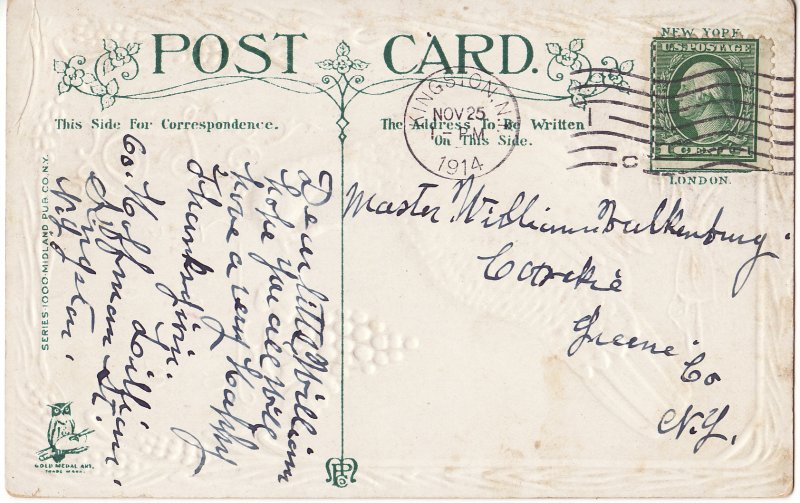 POST CARD.
NEW YORK
U.S. POSTAGE
1 CENT 1
LONDON.
KINGSTON, N.Y.
NOV 25
1 - PM
1914
This Side For Correspondence.
The Address To Be Written
On This Side.
Dear little William
hope you all will
have a very Happy
Thanksgivin.
Lillian.
60. Hoffman St.
Kingston.
N.Y.
Master William Valkenburg.
Greene Co
N.Y.
SERIES 1000-MIDLAND PUB. CO. N.Y.
GOLD MEDAL ART.
TRADE MARK.